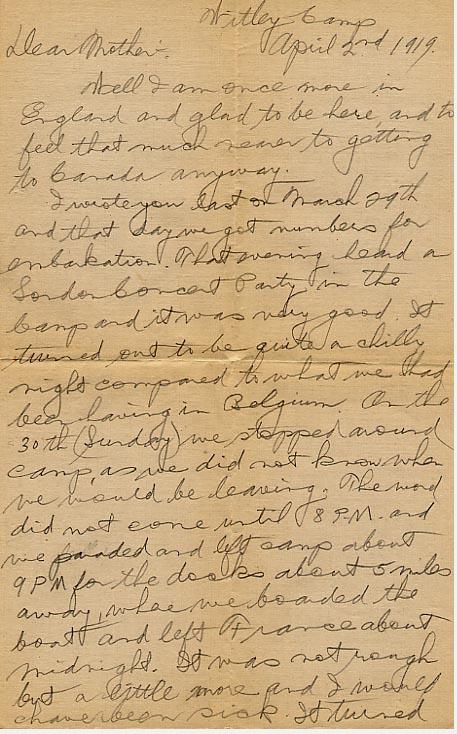 Witley Camp
April 2nd 1919.
Dear Mother:-
Well I am once more in
England and glad to be here, and to
feel that much nearer to getting
to Canada anyway.
I wrote you last on March 29th
and that day we got numbers for
embarkation. That evening heard a
London Concert Party, in the
Camp and it was very good. It
turned out to be quite a chilly
night compared to what we had
been having in Belgium. On the
30th (Sunday) we stopped around
camp, as we did not know when
we would be leaving. The word
did not come until 8 P.M. and
we paraded and left camp about
9 PM for the docks about 5 miles
away, where we boarded the
boat and left France about
midnight. It was not rough
but a little more and I would
have been sick. It turned